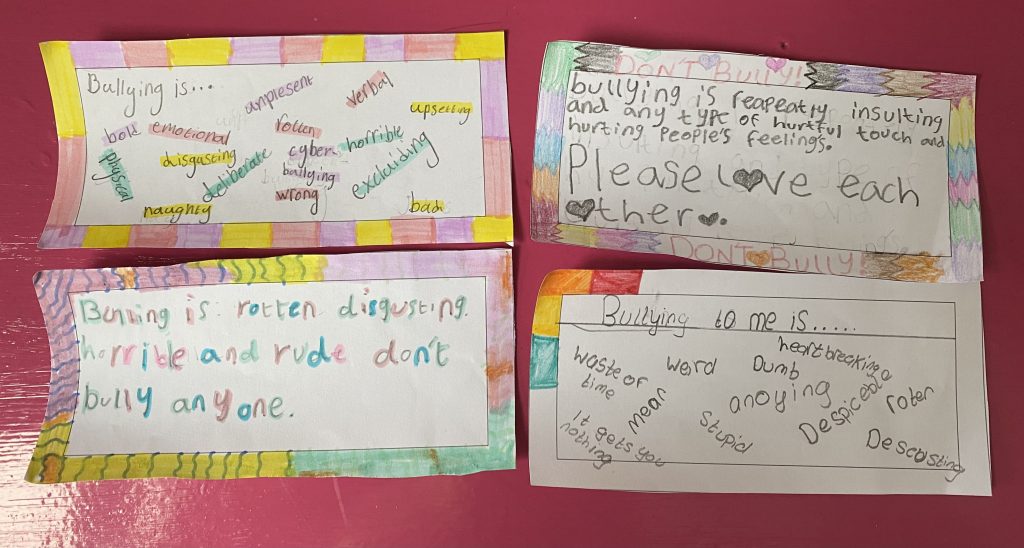 Bullying is...
anplesent
verbal
upsetting
bold
emotional
rotten
horrible
physical
disgasting
deliberate
cyber
bullying
excluding
wrong
naughty
bad
DON'T BULLY!
bullying is reapeatly insulting
and any type of hurtful touch and
hurting people's feelings.
Please love each
other.
DON'T BULLY!
is: rotten disgusting.
horrible and rude don't
bully anyone.
Bullying to me is.....
heartbreaking
waste of
time
werd
Dumb
mean
anoying
Despicebl
roter
It gets you
nothing
Stupid
Descusting